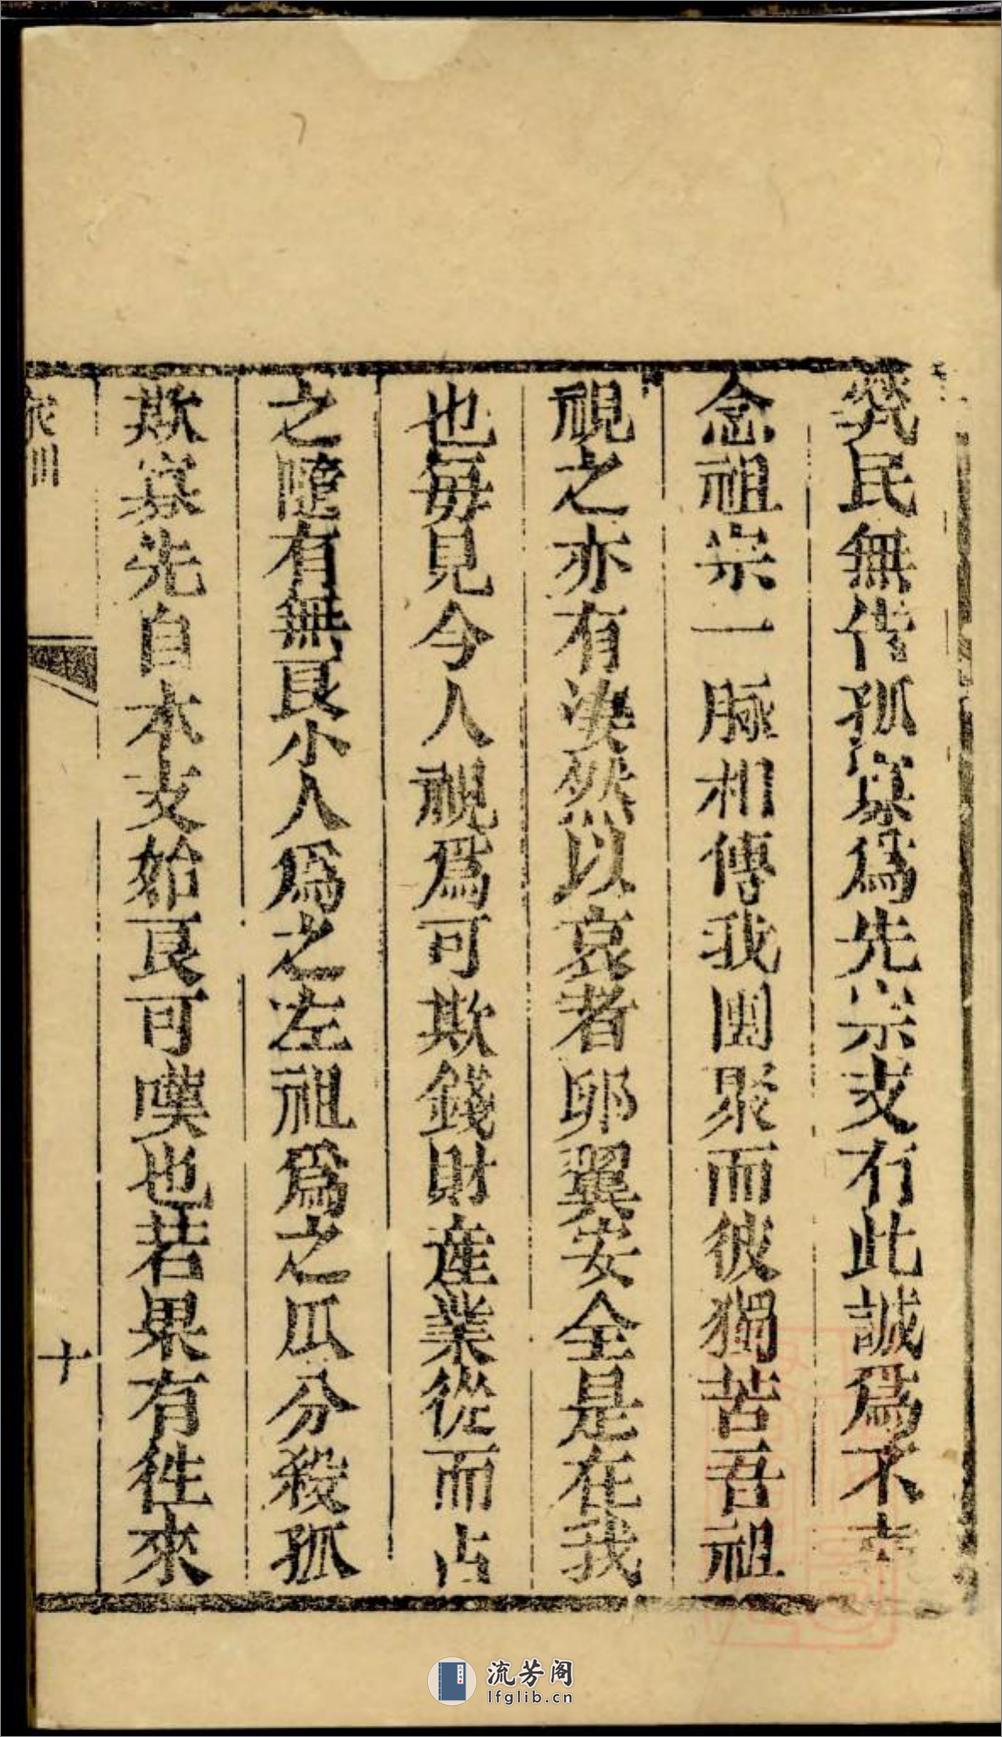 煢民無偕孤寡爲先宗支有此誠爲不幸
念祖宗一脈相傳我團聚而彼獨苦吾祖
視之亦有淒然以哀者卵翼安全是在我
也每見今人視爲可欺錢財產業從而占
之隨有無良小人爲之左袒爲之瓜分殺孤
欺寡先自本支始良可嘆也若果有徃來
家訓
十
流芳阁
lfglib.cn